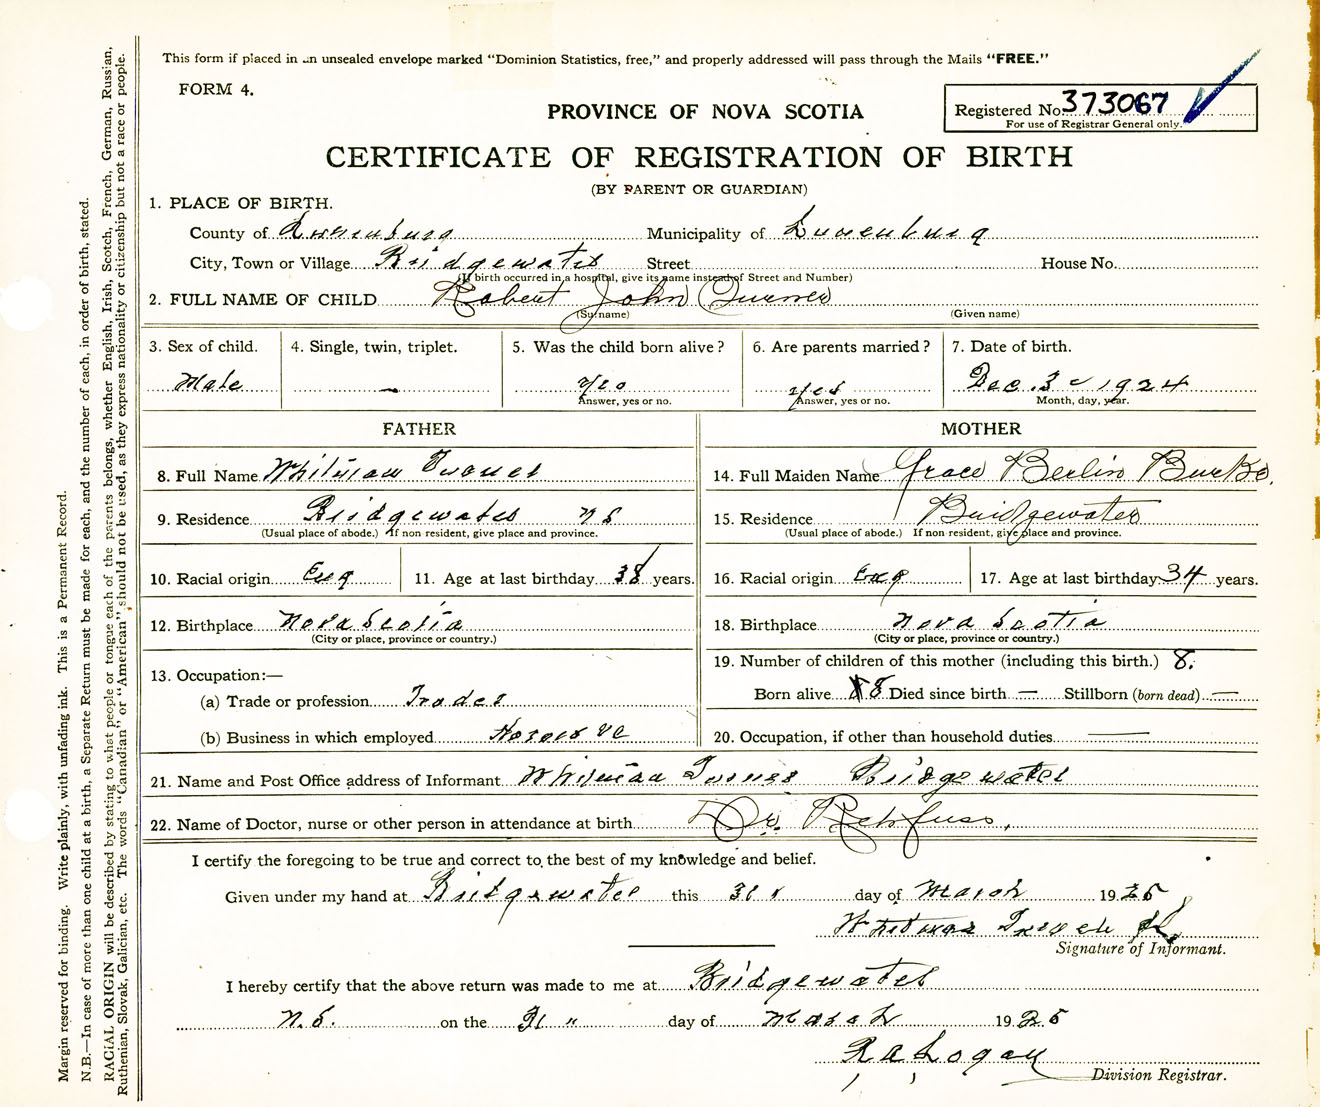 This form if placed in an unsealed envelope marked "Dominion Statistics, free," and properly addressed will pass through the Mails "FREE."
FORM 4.
PROVINCE OF NOVA SCOTIA
Registered No. 373067
For use of Registrar General only.
CERTIFICATE OF REGISTRATION OF BIRTH
(BY PARENT OR GUARDIAN)
1. PLACE OF BIRTH.
County of Lunenburg Municipality of Lunenburg
City, Town or Village Bridgewater Street House No.
(If birth occurred in a hospital, give its name instead of Street and Number)
2. FULL NAME OF CHILD Robert John Turner
(Surname) (Given name)
3. Sex of child. 4. Single, twin, triplet. 5. Was the child born alive? 6. Are parents married? 7. Date of birth.
Male – yes yes Dec. 3 1924
Answer, yes or no. Answer, yes or no. Month, day, year.
FATHER MOTHER
8. Full Name Whitman Turner 14. Full Maiden Name Grace Berlin Burke.
9. Residence Bridgewater NS 15. Residence Bridgewater
(Usual place of abode.) If non-resident, give place and province. (Usual place of abode.) If non-resident, give place and province.
10. Racial origin Eng 11. Age at last birthday 38 years. 16. Racial origin Eng 17. Age at last birthday 34 years.
12. Birthplace Nova Scotia 18. Birthplace Nova Scotia
(City or place, province or country.) (City or place, province or country.)
13. Occupation:— 19. Number of children of this mother (including this birth.) 8.
(a) Trade or profession Trader Born alive 8 Died since birth — Stillborn (born dead) —
(b) Business in which employed Horses 20. Occupation, if other than household duties ——
21. Name and Post Office address of Informant Whitman Turner Bridgewater
22. Name of Doctor, nurse or other person in attendance at birth Dr. Rehfuss,
I certify the foregoing to be true and correct to the best of my knowledge and belief.
Given under my hand at Bridgewater this 31 day of March 1925
Whitman Turner
Signature of Informant.
I hereby certify that the above return was made to me at Bridgewater
N.S. on the 31 " day of March 1925
R A Logan
Division Registrar.
Margin reserved for binding. Write plainly, with unfading ink. This is a Permanent Record.
N.B.—In case of more than one child at a birth, a Separate Return must be made for each, and the number of each, in order of birth, stated.
RACIAL ORIGIN will be described by stating to what people or tongue each of the parents belongs, whether English, Irish, Scotch, French, German, Russian,
Ruthenian, Slovak, Galician, etc. The words "Canadian" or "American" should not be used, as they express nationality or citizenship but not a race or people.